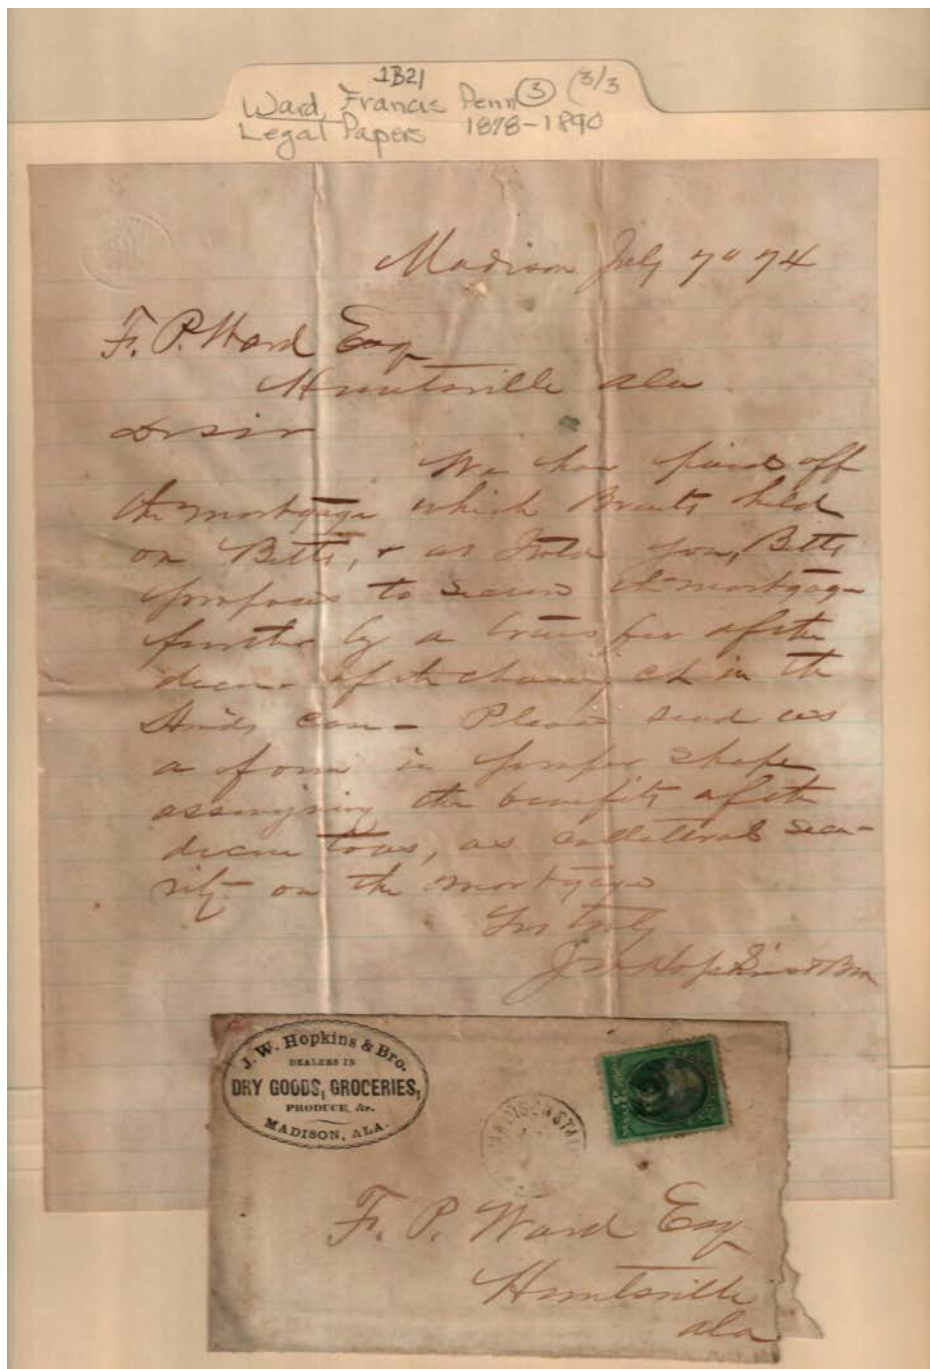 1B21
Ward, Francis Penn ③ (3/3
Legal Papers 1878-1890
Madison July 7" 74
F. P. Ward Esq
Huntsville Ala
Dr sir
We have paid off
the mortgage which held
on Betts, & as I told you, Betts
proposes to secure the mortgage
further by a transfer of the
decree of the chancy ct in the
case - Please send us
a form in proper shape
assigning the benefits of the
decree to us, as collateral secu-
rity on the mortgage
Yrs truly
J W Hopkins & Bro
J. W. Hopkins & Bro.
DEALERS IN
DRY GOODS, GROCERIES,
PRODUCE, &c.
MADISON, ALA.
MADISON STA
F. P. Ward Esq
Huntsville
ala